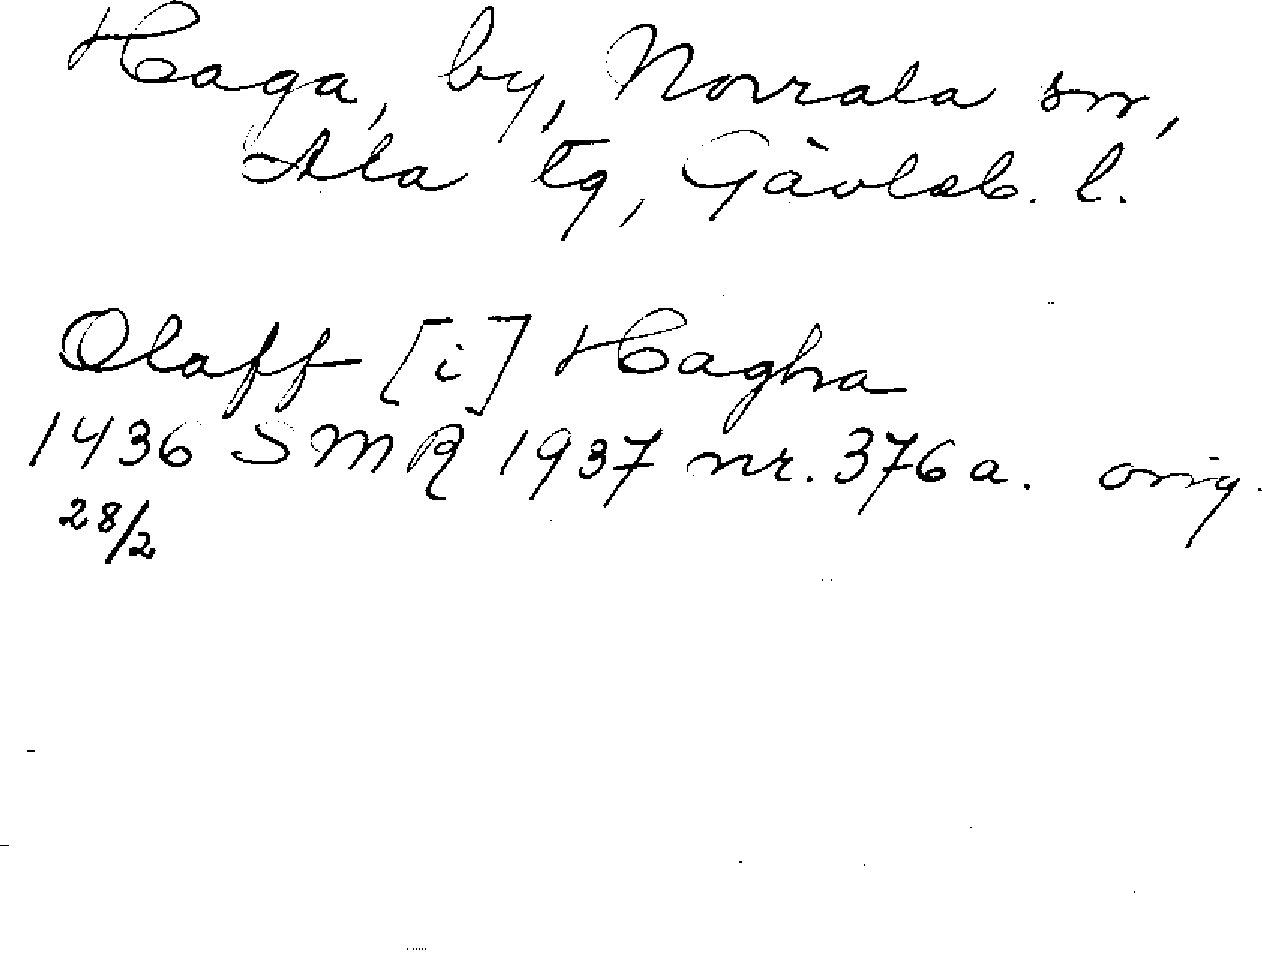 Haga, by, Norrala sn,
Ala tg, Gävleb. l.
Olaff [i] Hagha
1436 SMR 1937 nr. 376a. orig.
28/2